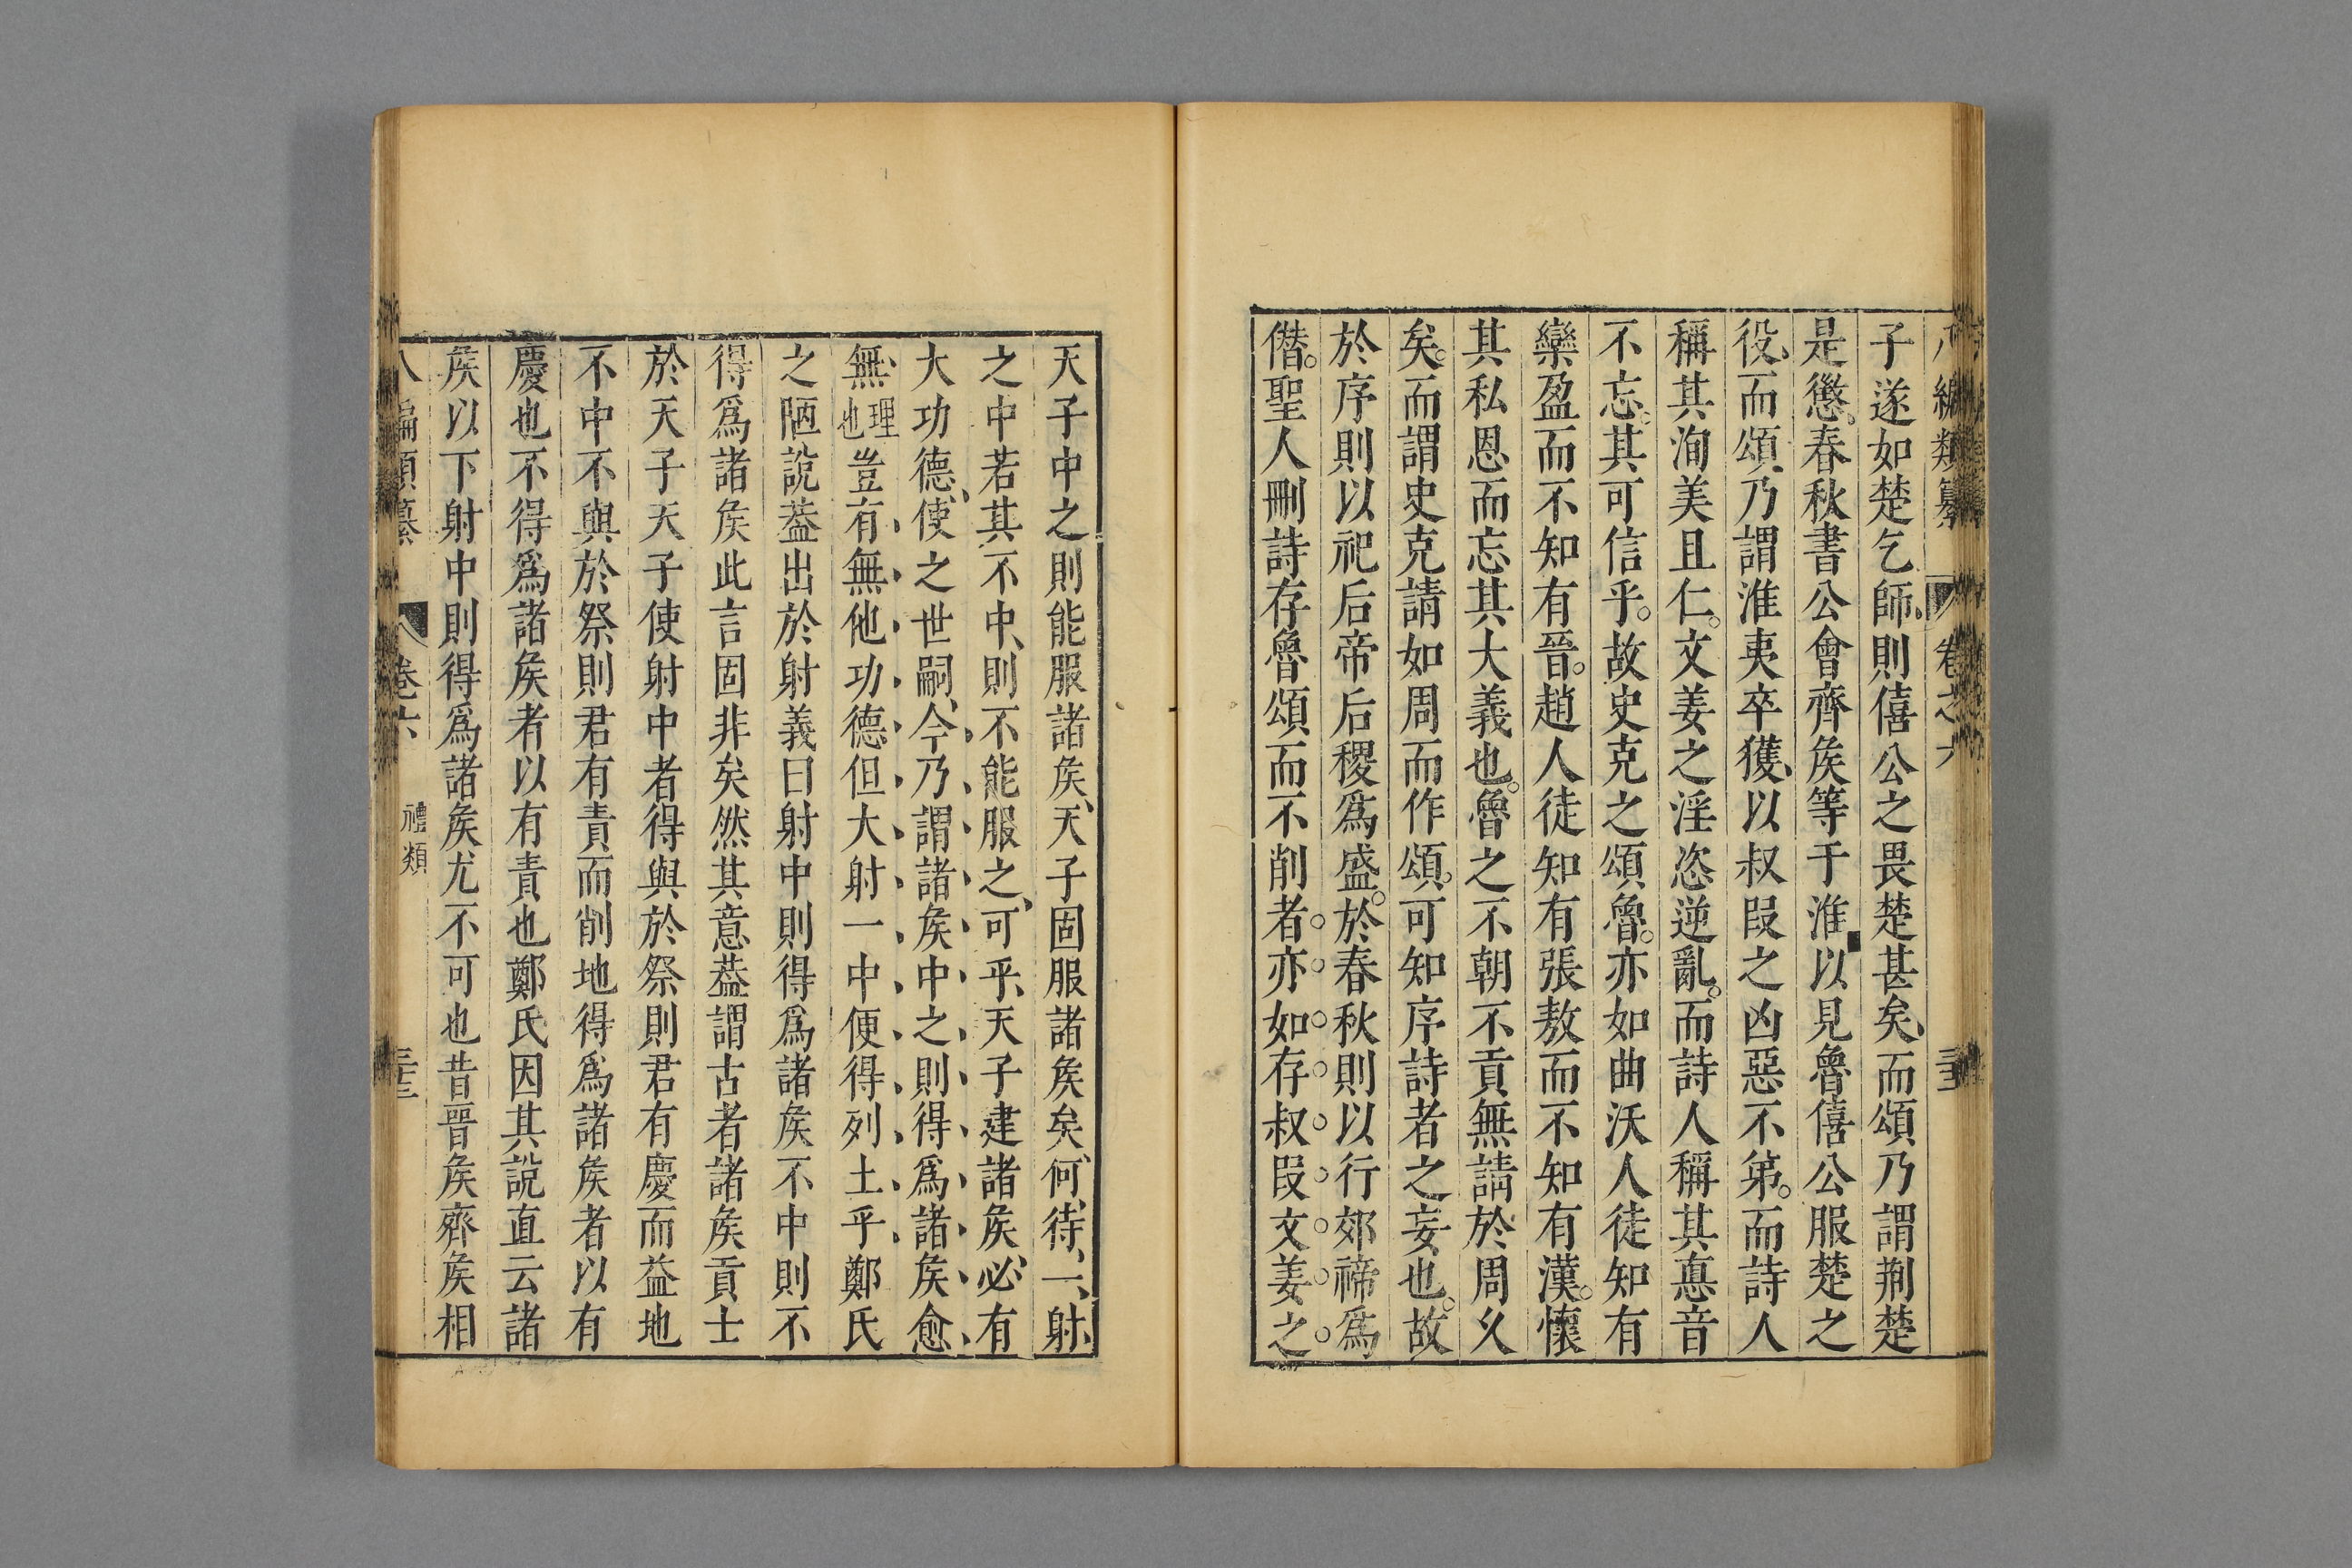 八編類纂 卷之六 三十三
子遂如楚乞師則僖公之畏楚甚矣而頌乃謂荆楚
是懲春秋書公會齊矦等于淮以見魯僖公服楚之
役而頌乃謂淮夷卒獲以叔段之凶惡不弟而詩人
稱其洵美且仁文姜之淫恣逆亂而詩人稱其悳音
不忘其可信乎故史克之頌魯亦如曲沃人徒知有
欒盈而不知有晉趙人徒知有張敖而不知有漢懷
其私恩而忘其大義也魯之不朝不貢無請於周乆
矣而謂史克請如周而作頌可知序詩者之妄也故
於序則以祀后帝后稷爲盛於春秋則以行郊禘爲
僭聖人刪詩存魯頌而不削者亦如存叔段文姜之
天子中之則能服諸矦天子固服諸矦矣何待一射
之中若其不中則不能服之可乎天子建諸矦必有
大功德使之世嗣今乃謂諸矦中之則得爲諸矦愈
無理也豈有無他功德但大射一中便得列土乎鄭氏
之陋說葢出於射義曰射中則得爲諸矦不中則不
得爲諸矦此言固非矣然其意葢謂古者諸矦貢士
於天子天子使射中者得與於祭則君有慶而益地
不中不與於祭則君有責而削地得爲諸矦者以有
慶也不得爲諸矦者以有責也鄭氏因其說直云諸
矦以下射中則得爲諸矦尤不可也昔晉矦齊矦相
八編類纂 卷之六 禮類 三十三